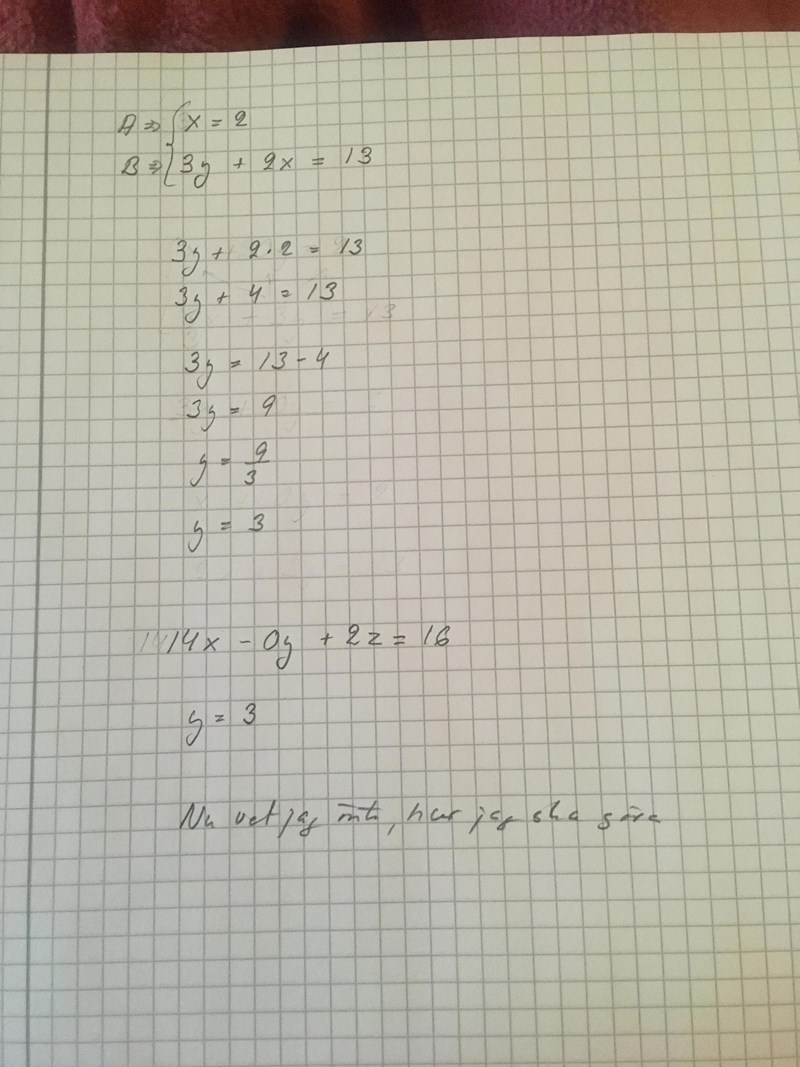 A => { x = 2
B => { 3y + 2x = 13
3y + 2·2 = 13
3y + 4 = 13
3y = 13 - 4
3y = 9
y = 9/3
y = 3
14x - 0y + 2z = 16
y = 3
Nu vet jag inte, hur jag ska göra